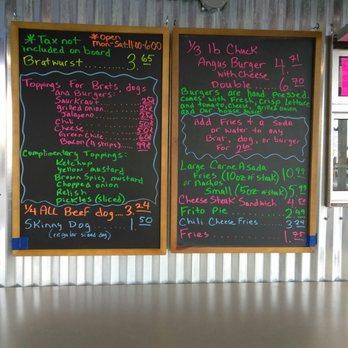 * Tax not included on board
* Open Mon-Sat. 11:00-6:00
Bratwurst 3.65
Toppings For Brats, dogs
and Burgers:
Saurkraut 25¢
grilled onion 25¢
Jalapeno 25¢
Chili
Cheese 50¢
Green chile
Bacon (4 strips) 99¢
Complimentary Toppings:
Ketchup
yellow mustard
Brown spicy mustard
Chopped onion
Relish
pickles (sliced)
1/4 All Beef dog... 3.24
Skinny Dog 1.50
(regular sized dog)
1/3 lb Chuck
Angus Burger 4.71
with Cheese
Double 6.70
Burgers are hand pressed.
Comes with Fresh, Crisp lettuce
and tomato, cheese, grilled onions
and Our Special Sauce
Add Fries & a Soda
or water to any
Brat, dog, or burger
For
Large Carne Asada
Fries (10oz of steak) 10.
or nachos
Small (5oz of steak) 5.99
Cheese Steak Sandwich 4.50
Frito Pie 2.49
Chili Cheese Fries 3.24
Fries 1.75